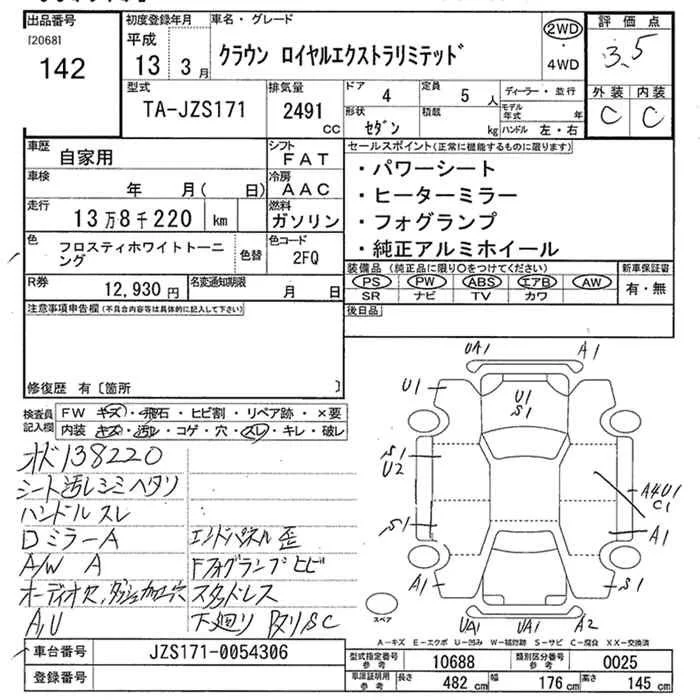 出品番号
[2068]
142
初度登録年月
平成
13 3月
車名・グレード
クラウン ロイヤルエクストラリミテッド
2WD
・
4WD
評価点
3.5
外装 内装
C C
型式
TA-JZS171
排気量
2491
CC
ドア 4
定員 5人
形状 セダン
積載 kg
ディーラー・並行
モデル年式 年
ハンドル 左・右
車歴 自家用
シフト FAT
車検 年 月( 日)
冷房 AAC
走行 13万8千220 km
燃料 ガソリン
色 フロスティホワイトトーニング
色替
色コード 2FQ
R券 12,930円
名変通知期限 月 日
セールスポイント(正常に機能するものに限ります)
・パワーシート
・ヒーターミラー
・フォグランプ
・純正アルミホイール
装備品(純正品に限り○をつけてください)
PS PW ABS エアB AW
SR ナビ TV カワ
新車保証書
有・無
注意事項申告欄(不具合内容等は具体的に記入して下さい)
修復歴 有〔箇所 〕
後日品
検査員記入欄
FW キズ・飛石・ヒビ割・リペア跡・×要
内装 キズ・汚れ・コゲ・穴・スレ・キレ・破レ
オド138220
シート汚レシミヘタリ
ハンドルスレ
DミラーA
エンドパネル歪
A/W A
Fフォグランプヒビ
スタッドレス
A,U
下廻り サビSC
UA1 A1
U1
U1
S1
S1
U2
A4U1
C1
S1
A1
A1
S1
UA1 UA1 A2
スペア
A-キズ E-エクボ U-凹み W-補修跡 S-サビ C-腐食 XX-交換済
車台番号 JZS171-0054306
登録番号
型式指定番号 参考 10688
類別区分番号 参考 0025
車庫証明用 参考 長さ 482 cm 幅 176 cm 高さ 145 cm